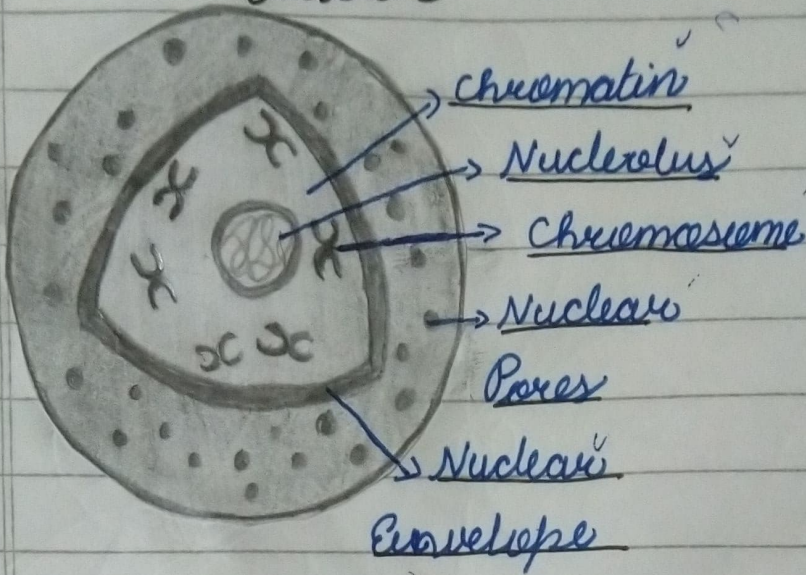 Chromatin
Nucleolus
Chromosome
Nuclear
Pores
Nuclear
Envelope